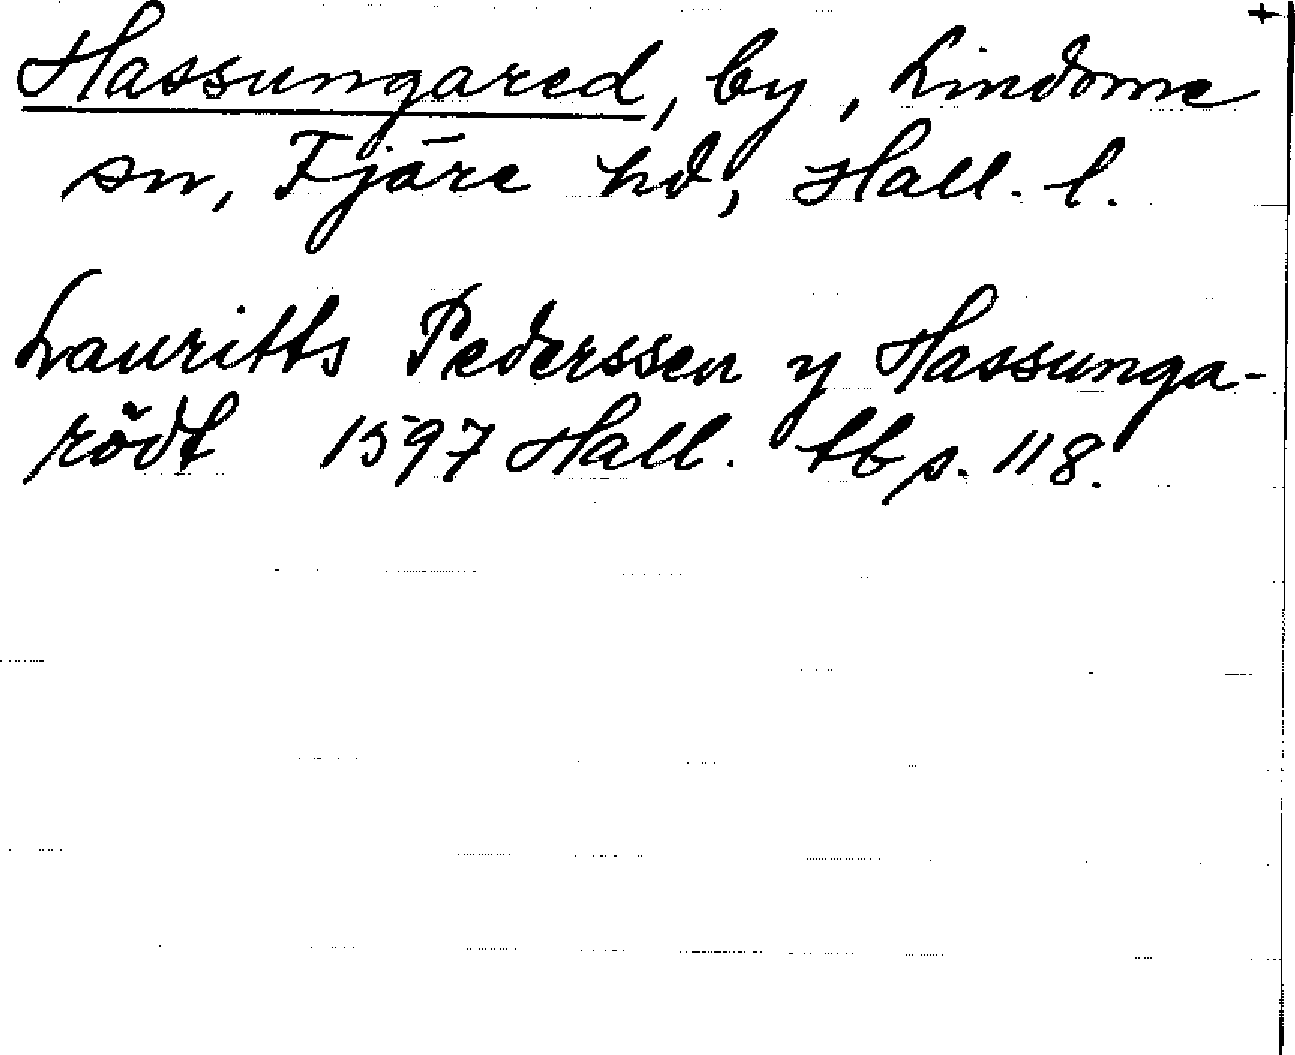 +
Hassungared, by, Lindome
sn, Fjäre hd, Hall. l.
Lauritts Pederssen y Hassunga-
rödt 1597 Hall. tb s. 118.